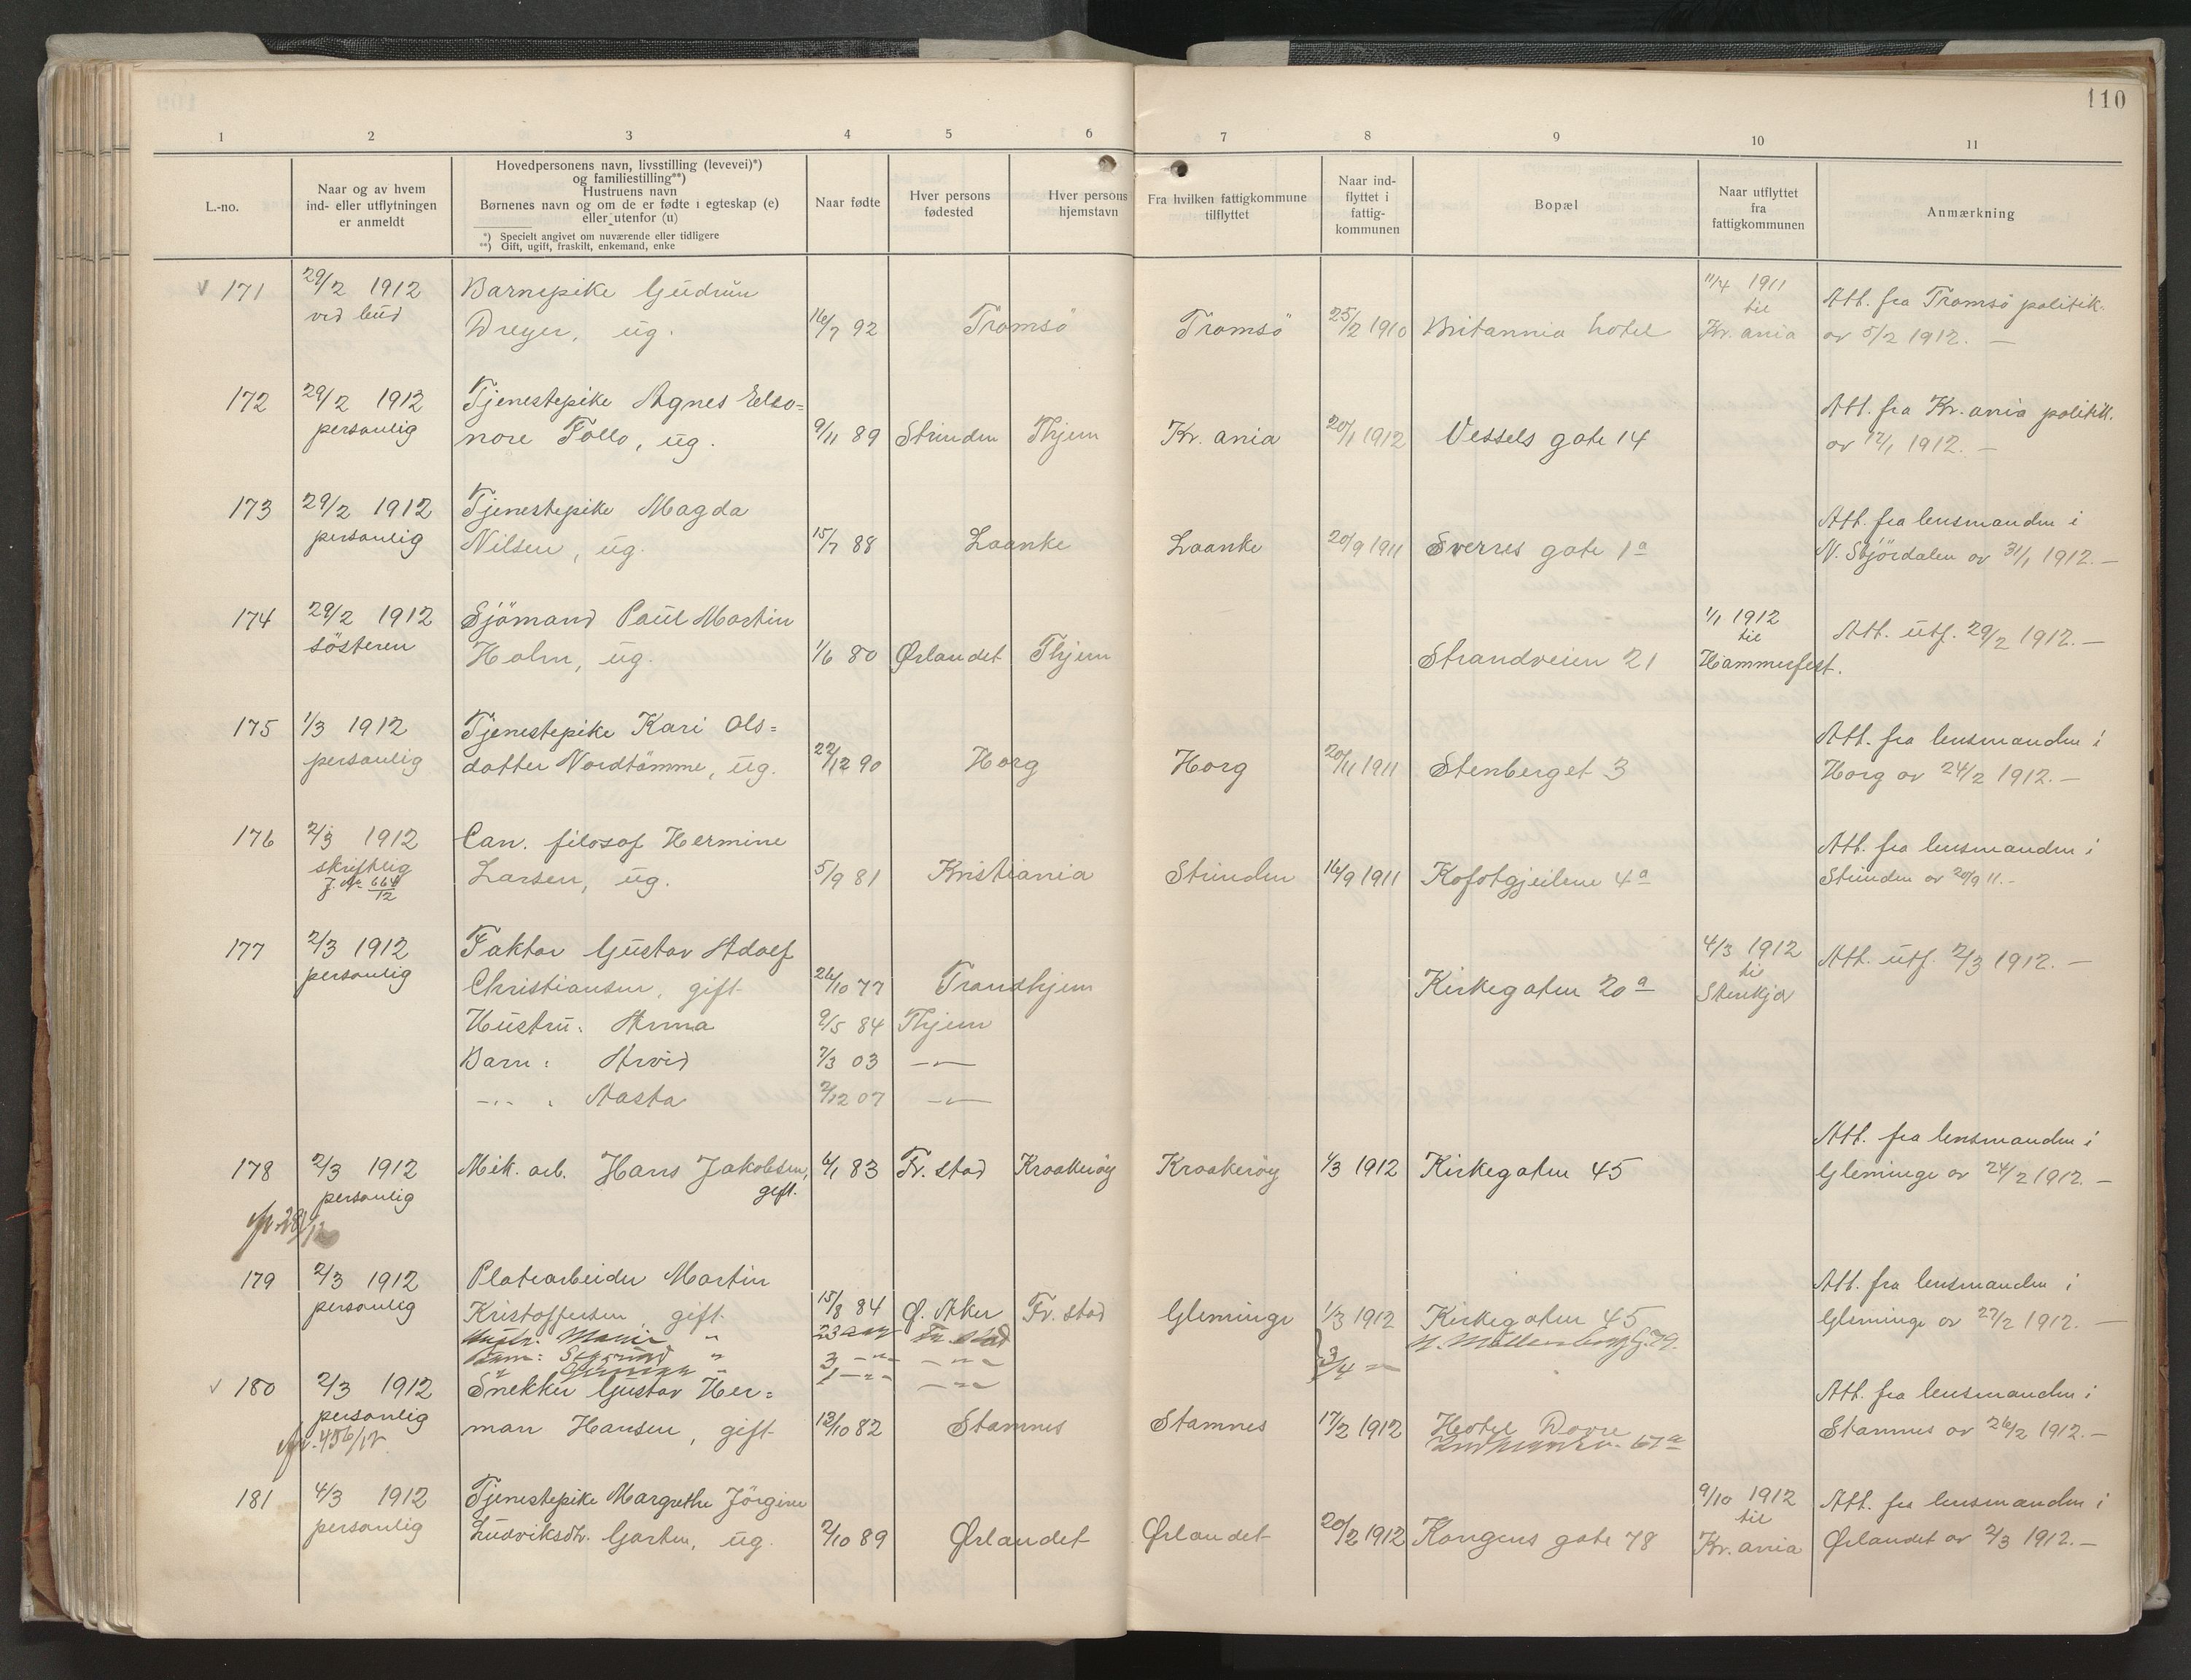 110
1 2 3 4 5 6 7 8 9 10 11
L.-no.
Naar og av hvem
ind- eller utflytningen
er anmeldt
Hovedpersonens navn, livsstilling (levevei)*)
og familiestilling**)
Hustruens navn
Børnenes navn og om de er fødte i egteskap (e)
eller utenfor (u)
*) Specielt angivet om nuværende eller tidligere
**) Gift, ugift, fraskilt, enkemand, enke
Naar fødte
Hver persons
fødested
Hver persons
hjemstavn
Fra hvilken fattigkommune
tilflyttet
Naar ind-
flyttet i
fattig-
kommunen
Bopæl
Naar utflyttet
fra
fattigkommunen
Anmærkning
v 171 29/2 1912 Barnepike Gudrun 11/4 1911 Att. fra Tromsö politik.
ved bud Dreyer, ug. 16/7 92 Tromsö Tromsö 25/2 1910 Britannia hotel til Kr.ania av 5/2 1912. —
172 29/2 1912 Tjenestepike Agnes Eleo= Att. fra Kr.ania politik.
personlig nore Follo, ug. 9/11 89 Strinden Thjem Kr. ania 20/1 1912 Vessels gate 14 av 12/1 1912. —
173 29/2 1912 Tjenestepike Magda Att. fra lensmanden i
personlig Nilsen, ug. 15/7 88 Laanke Laanke 20/9 1911 Sverres gate 1a N. Stjördalen av 31/1 1912. —
174 29/2 1912 Sjömand Paul Martin 1/1 1912 Att. utf. 29/2 1912. —
sösteren Holm, ug. 1/6 80 Ørlandet Thjem Strandveien 21 til Hammerfest.
175 1/3 1912 Tjenestepike Kari Ols= Att. fra lensmanden i
personlig datter Nordtömme, ug. 22/12 90 Horg Horg 20/11 1911 Stenberget 3 Horg av 24/2 1912. —
176 2/3 1912 Can. filosof Hermine Att. fra lensmanden i
skriftlig Larsen, ug. 5/9 81 Kristiania Strinden 16/9 1911 Kofotgjeilene 4a Strinden av 20/9 11. -
J. No 664/12
177 2/3 1912 Faktor Gustav Adolf 4/3 1912 Att. utf. 2/3 1912. —
personlig Christiansen, gift 26/10 77 Transthjem Kirkegaten 20a til Stenkjær
Hustru: Anna 9/5 84 Thjem
Barn: Arvid 7/3 03 —"—
—"— : Aasta 2/12 07 —"—
Att. fra lensmanden i
178 2/3 1912 Mek. arb. Hans Jakobsen, 6/1 83 Fr. stad Kraakeröy Kraakeröy 1/3 1912 Kirkegaten 45 Glemminge av 24/2 1912. —
personlig gift.
179 2/3 1912 Platearbeider Martin Att. fra lensmanden i
personlig Kristoffersen gift. 15/8 84 Ø. Aker Fr. stad Glemminge 1/3 1912 Kirkegaten 45 Glemminge av 27/2 1912. —
Hustr. Marie " 23 aar Fr. stad
Barn: Sigrund " 3 —"— —"— 3/4 "
" " 1 —"— —"—
v 180 2/3 1912 Snekker Gustav Her= Att. fra lensmanden i
personlig man Hansen, gift 12/10 82 Stamnes Stamnes 17/2 1912 Hotel Dovre Stamnes av 26/2 1912. —
456/12 67a
181 4/3 1912 Tjenestepike Margrethe Jörgine 9/10 1912 Att. fra lensmanden i
personlig Ludviksdtr. Garten, ug. 2/10 89 Ørlandet Ørlandet 20/2 1912 Kongens gate 78 til Kr.ania Ørlandet av 2/3 1912. —